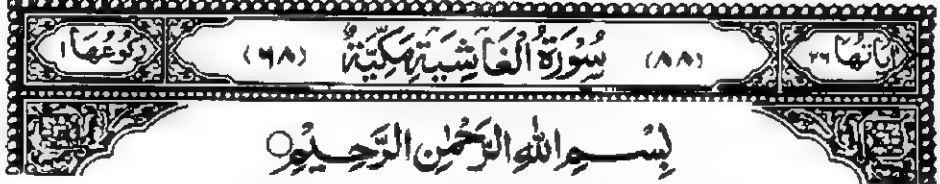 اٰيَاتُهَا ٢٦ (٨٨) سُوْرَةُ الْغَاشِيَةِ مَكِّيَّةٌ (٦٨) رُكُوْعُهَا ١
بِسْمِ اللّٰهِ الرَّحْمٰنِ الرَّحِيْمِ ○